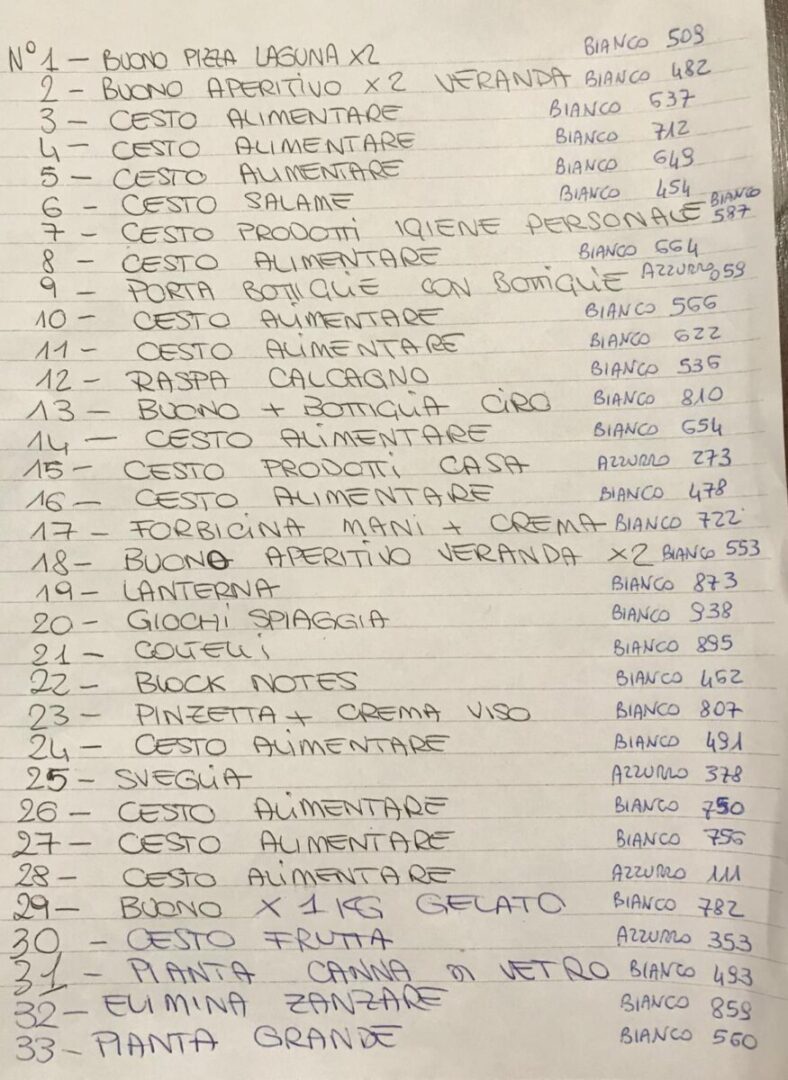 N°1 - BUONO PIZZA LAGUNA X2 BIANCO 509
2 - BUONO APERITIVO X2 VERANDA BIANCO 482
3 - CESTO ALIMENTARE BIANCO 637
4 - CESTO ALIMENTARE BIANCO 712
5 - CESTO ALIMENTARE BIANCO 649
6 - CESTO SALAME BIANCO 454
7 - CESTO PRODOTTI IGIENE PERSONALE BIANCO 587
8 - CESTO ALIMENTARE BIANCO 664
9 - PORTA BOTTIGLIE CON BOTTIGLIE AZZURRO 059
10 - CESTO ALIMENTARE BIANCO 566
11 - CESTO ALIMENTARE BIANCO 622
12 - RASPA CALCAGNO BIANCO 536
13 - BUONO + BOTTIGLIA CIRO BIANCO 810
14 - CESTO ALIMENTARE BIANCO 654
15 - CESTO PRODOTTI CASA AZZURRO 273
16 - CESTO ALIMENTARE BIANCO 478
17 - FORBICINA MANI + CREMA BIANCO 722
18 - BUONO APERITIVO VERANDA X2 BIANCO 553
19 - LANTERNA BIANCO 873
20 - GIOCHI SPIAGGIA BIANCO 938
21 - COLTELLI BIANCO 895
22 - BLOCK NOTES BIANCO 462
23 - PINZETTA + CREMA VISO BIANCO 807
24 - CESTO ALIMENTARE BIANCO 491
25 - SVEGLIA AZZURRO 378
26 - CESTO ALIMENTARE BIANCO 750
27 - CESTO ALIMENTARE BIANCO 756
28 - CESTO ALIMENTARE AZZURRO 111
29 - BUONO X 1 KG GELATO BIANCO 782
30 - CESTO FRUTTA AZZURRO 353
31 - PIANTA CANNA DI VETRO BIANCO 493
32 - ELIMINA ZANZARE BIANCO 859
33 - PIANTA GRANDE BIANCO 560